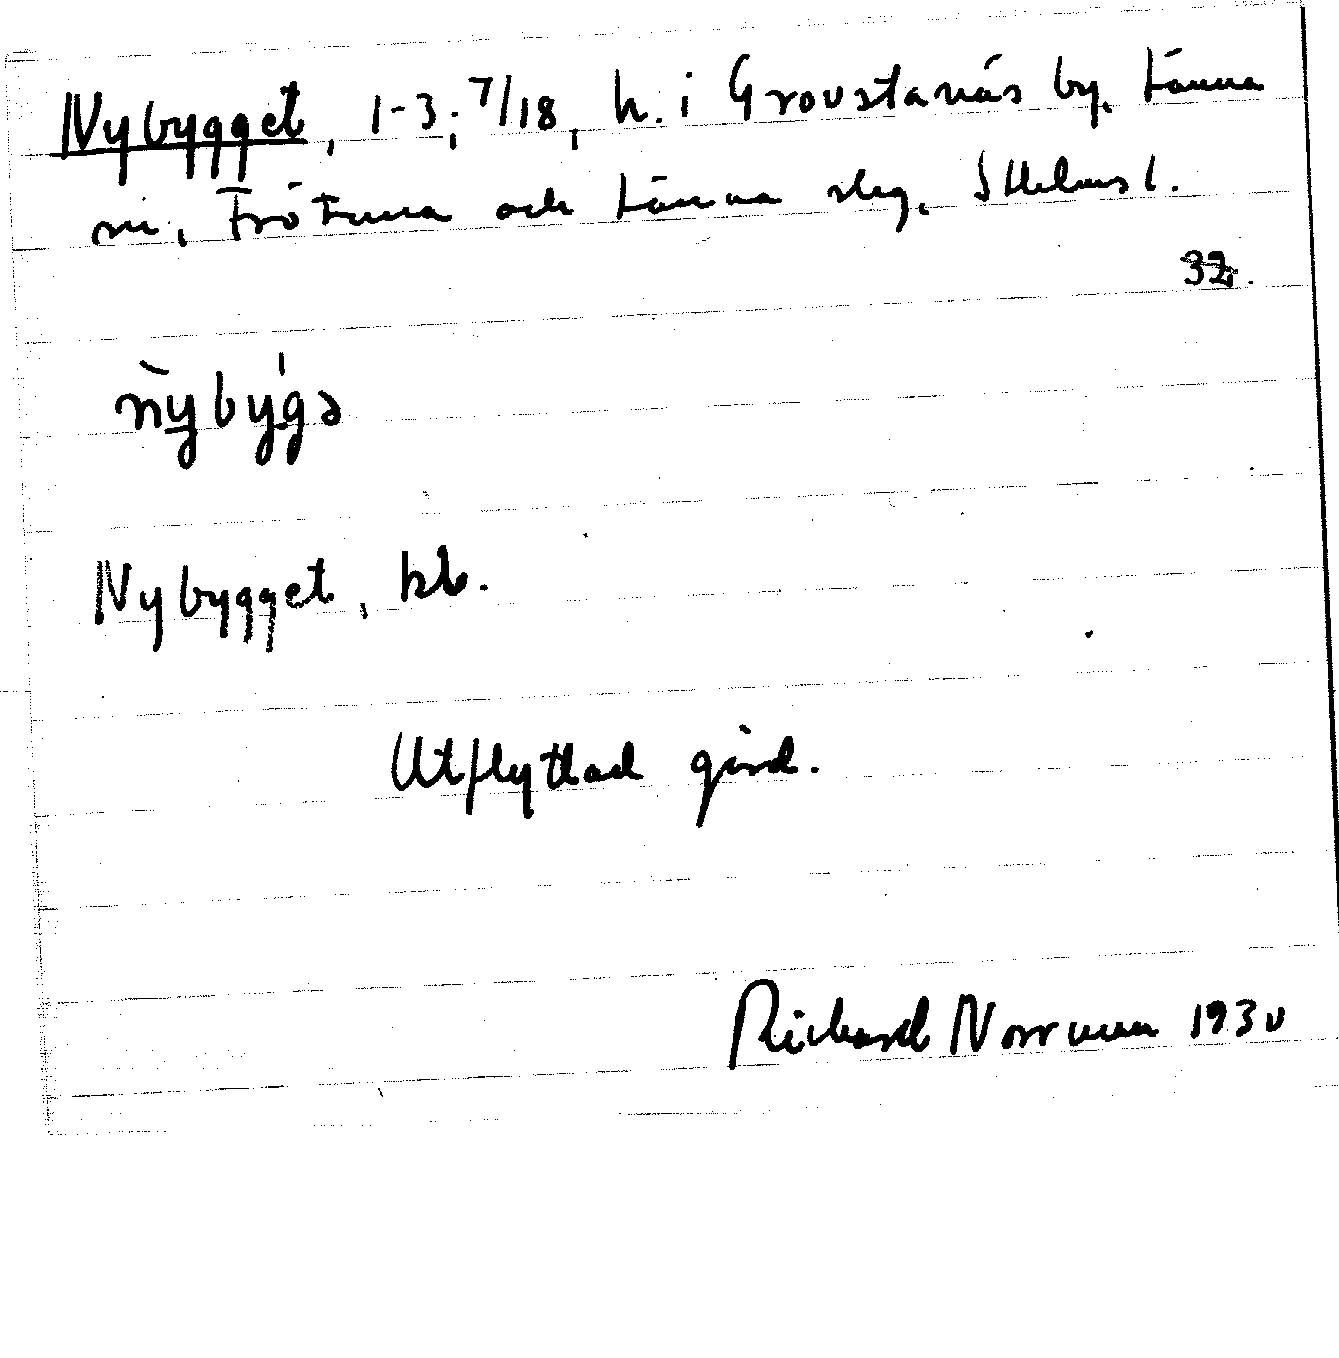 Nybygget, 1-3; 7/18, h. i Grovstanäs by, Länna
sn, Frötuna och Länna slg, Sthlms l.
32.
nybygə
Nybygget, kb.
Utflyttad gård.
Richard Norrman 1930